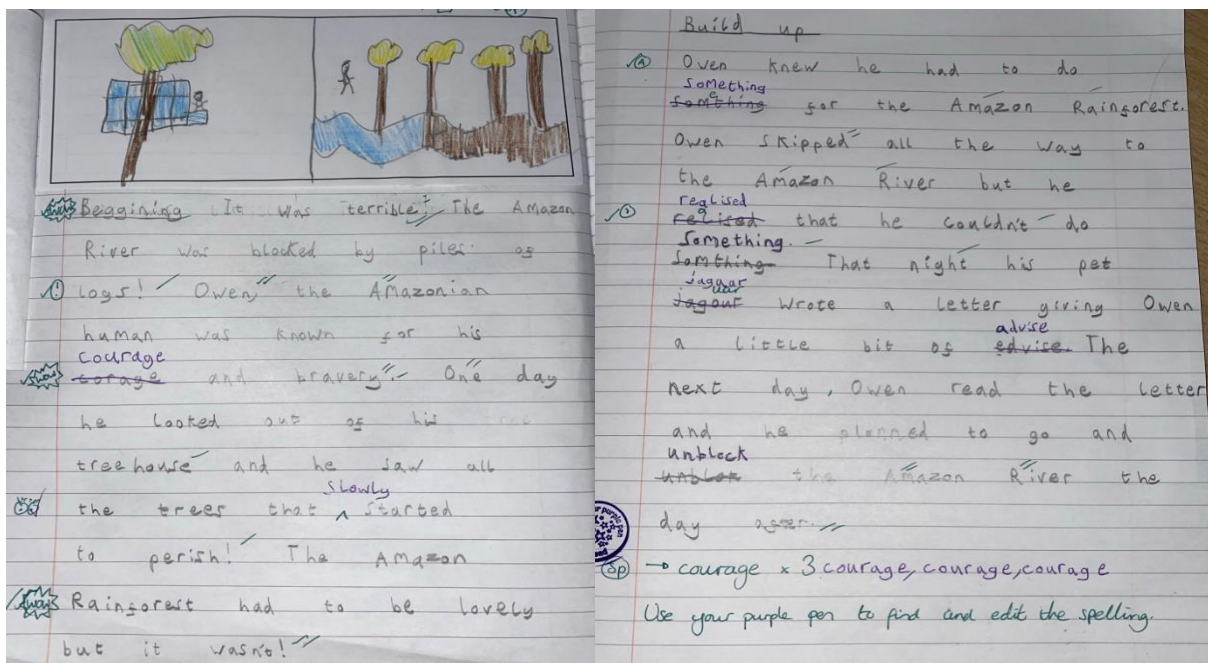 Beggining It was terrible. The Amazon
River was blocked by piles of
logs! Owen, the Amazonian
human was known for his
courage
corage and bravery. One day
he looked out of his tree
treehouse and he saw all
slowly
the trees that ^ started
to perish! The Amazon
Rainforest had to be lovely
but it wasn't!
Build up
Owen knew he had to do
something
something for the Amazon Rainforest.
Owen skipped all the way to
the Amazon River but he
realised
relised that he couldn't do
something.
somthing. That night his pet
jaguar
Jagour wrote a letter giving Owen
advise
a little bit of edvise. The
next day, Owen read the letter
and he planned to go and
unblock
unblok the Amazon River the
day after.
purple pen
Sp → courage x 3 courage, courage, courage
Use your purple pen to find and edit the spelling.